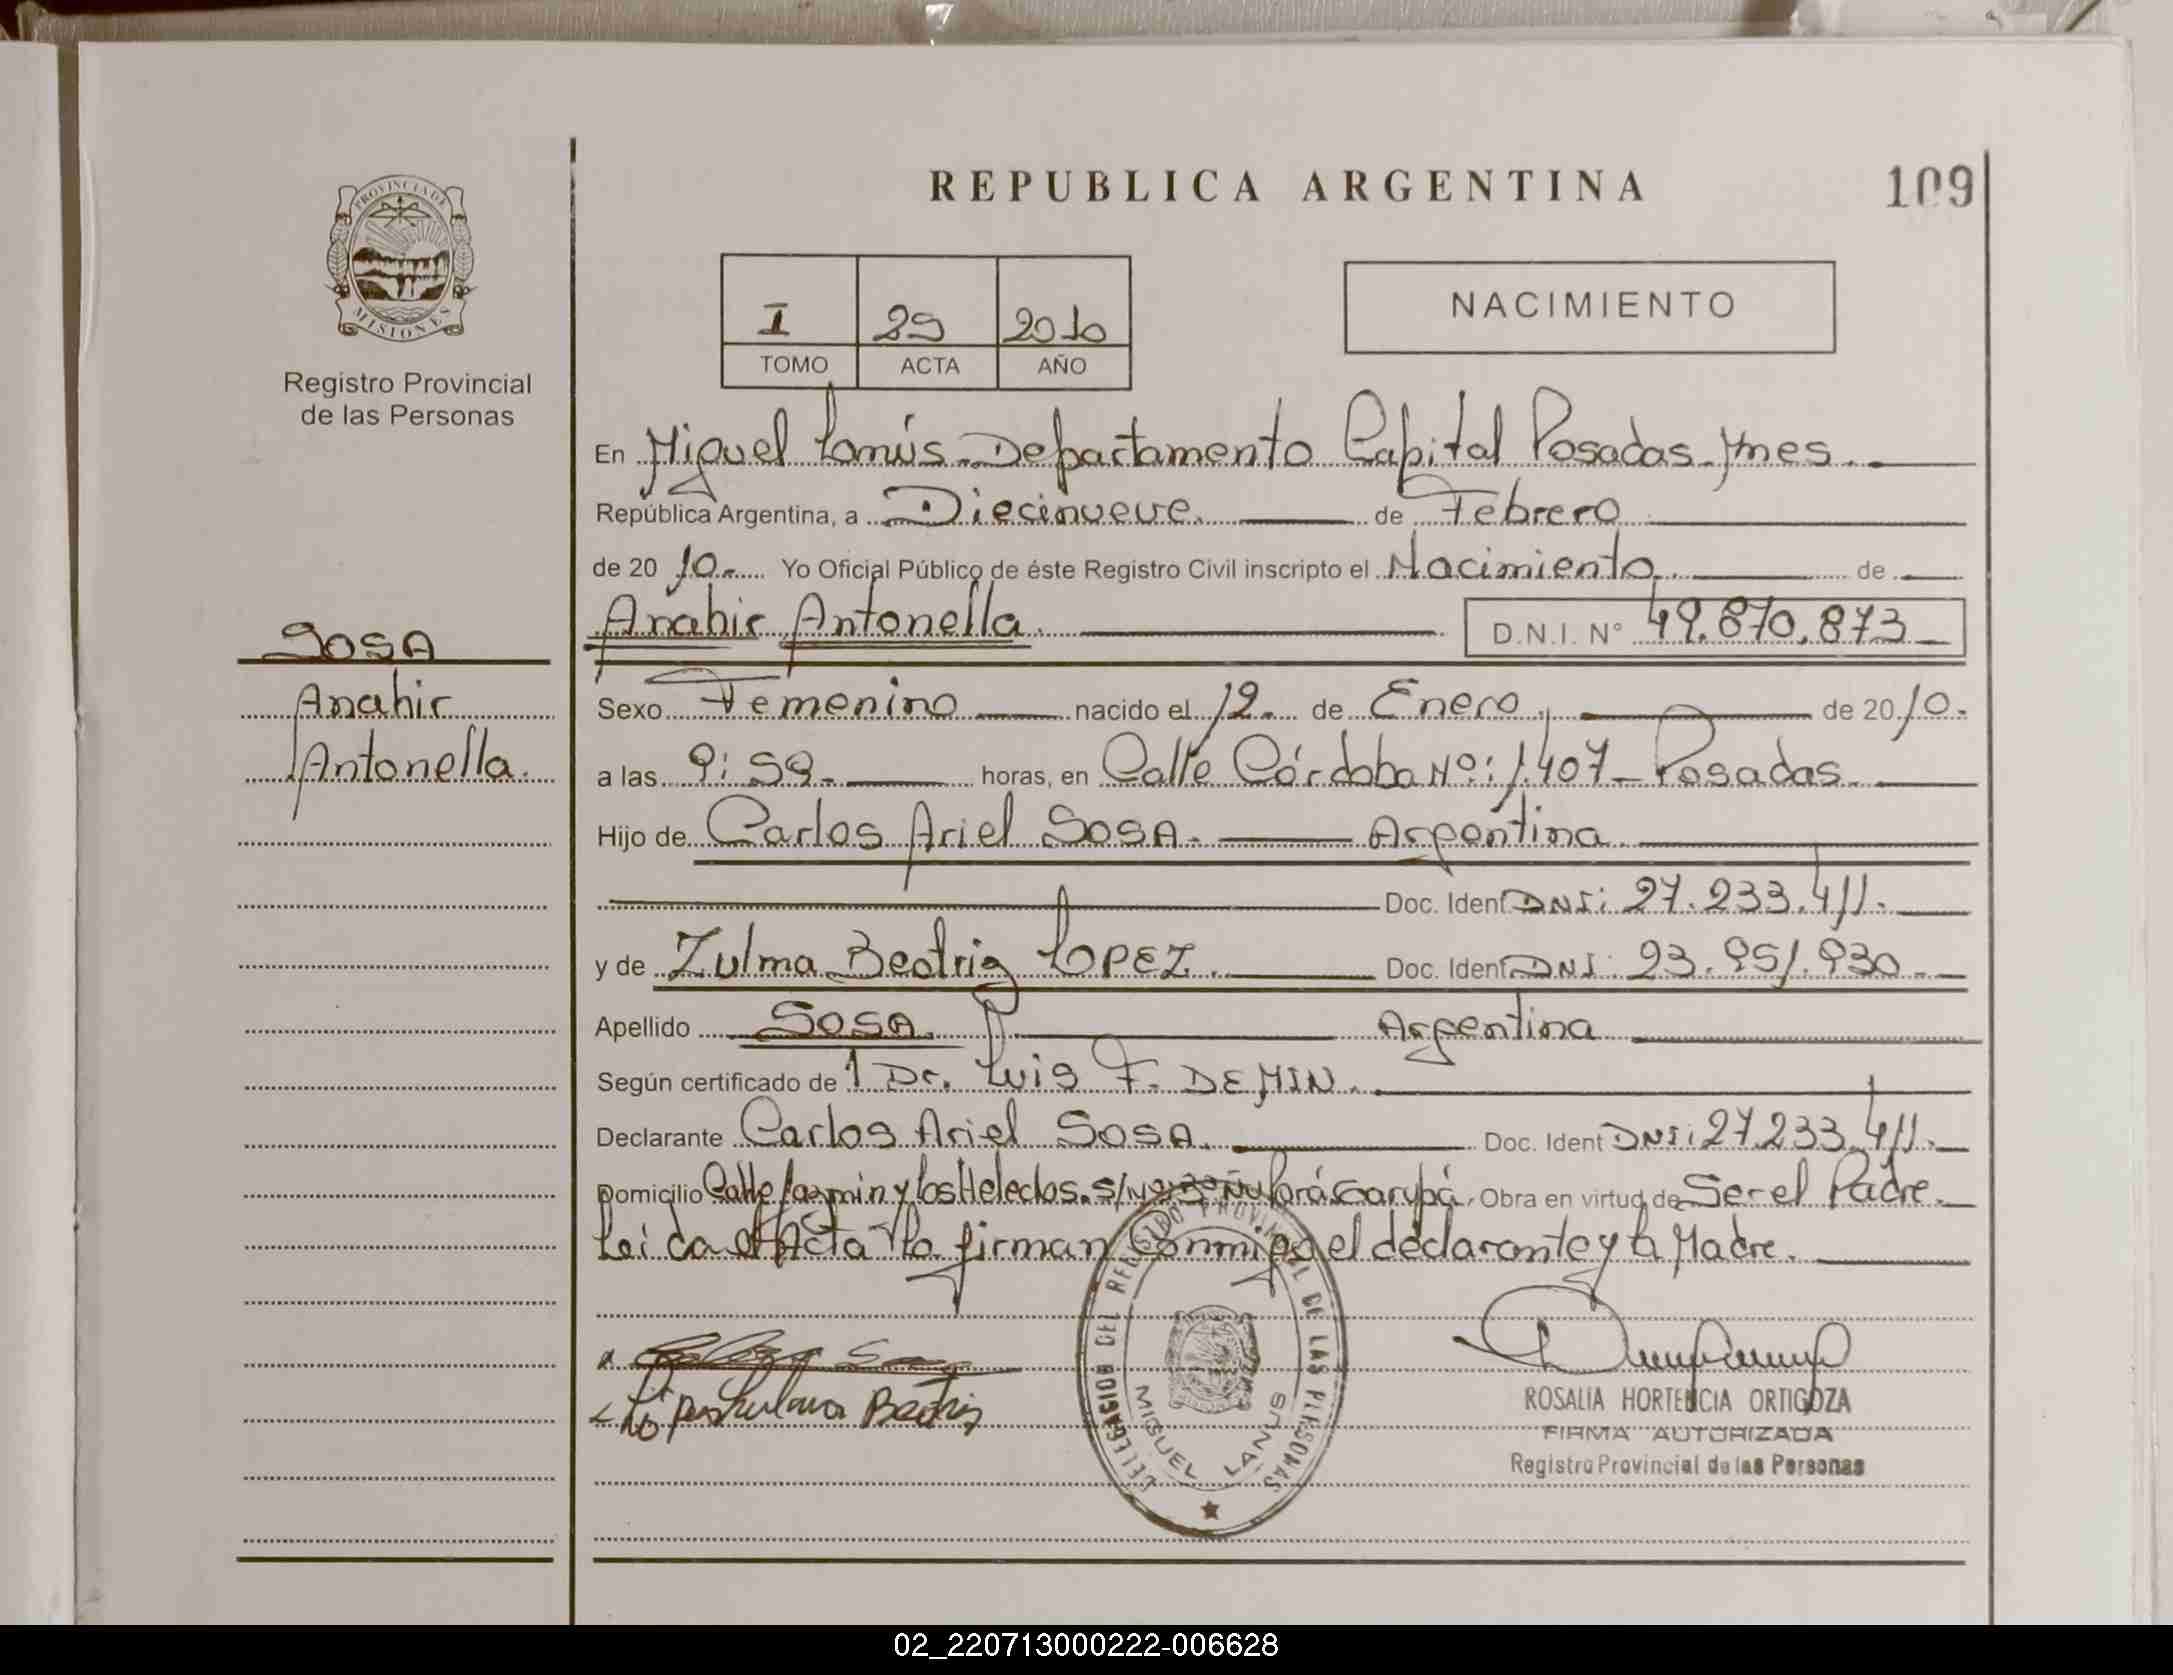 PROVINCIA DE
MISIONES
Registro Provincial
de las Personas
SOSA
Anahir
Antonella.
REPUBLICA ARGENTINA
109
I 29 2010
TOMO ACTA AÑO
NACIMIENTO
En Miguel Lanús Departamento Capital Posadas Mnes.
República Argentina, a Diecinueve. de Febrero
de 20 10 Yo Oficial Público de éste Registro Civil inscripto el Nacimiento de
Anahir Antonella. D.N.I. N° 49.870.873
Sexo Femenino nacido el 12. de Enero de 20 10.
a las 9:59 horas, en Calle Córdoba Nº: 1.407 Posadas.
Hijo de Carlos Ariel SOSA. Argentina
Doc. Ident DNI: 27.233.411.
y de Zulma Beatriz LOPEZ. Doc. Ident DNI: 23.951.930
Apellido SOSA. Argentina
Según certificado de 1 Dr. Luis F. DEMIN.
Declarante Carlos Ariel SOSA. Doc. Ident DNI: 27.233.411.
Domicilio Calle Jazmin y los Helechos. s/nº Ñu Porá Garupá. Obra en virtud de Ser el Padre.
Leida el Acta la firman Conmigo el declarante y la Madre.
DELEGACION DEL REGISTRO PROVINCIAL DE LAS PERSONAS
MIGUEL LANUS
Beatriz
ROSALIA HORTENCIA ORTIGOZA
FIRMA AUTORIZADA
Registro Provincial de las Personas
02_220713000222-006628